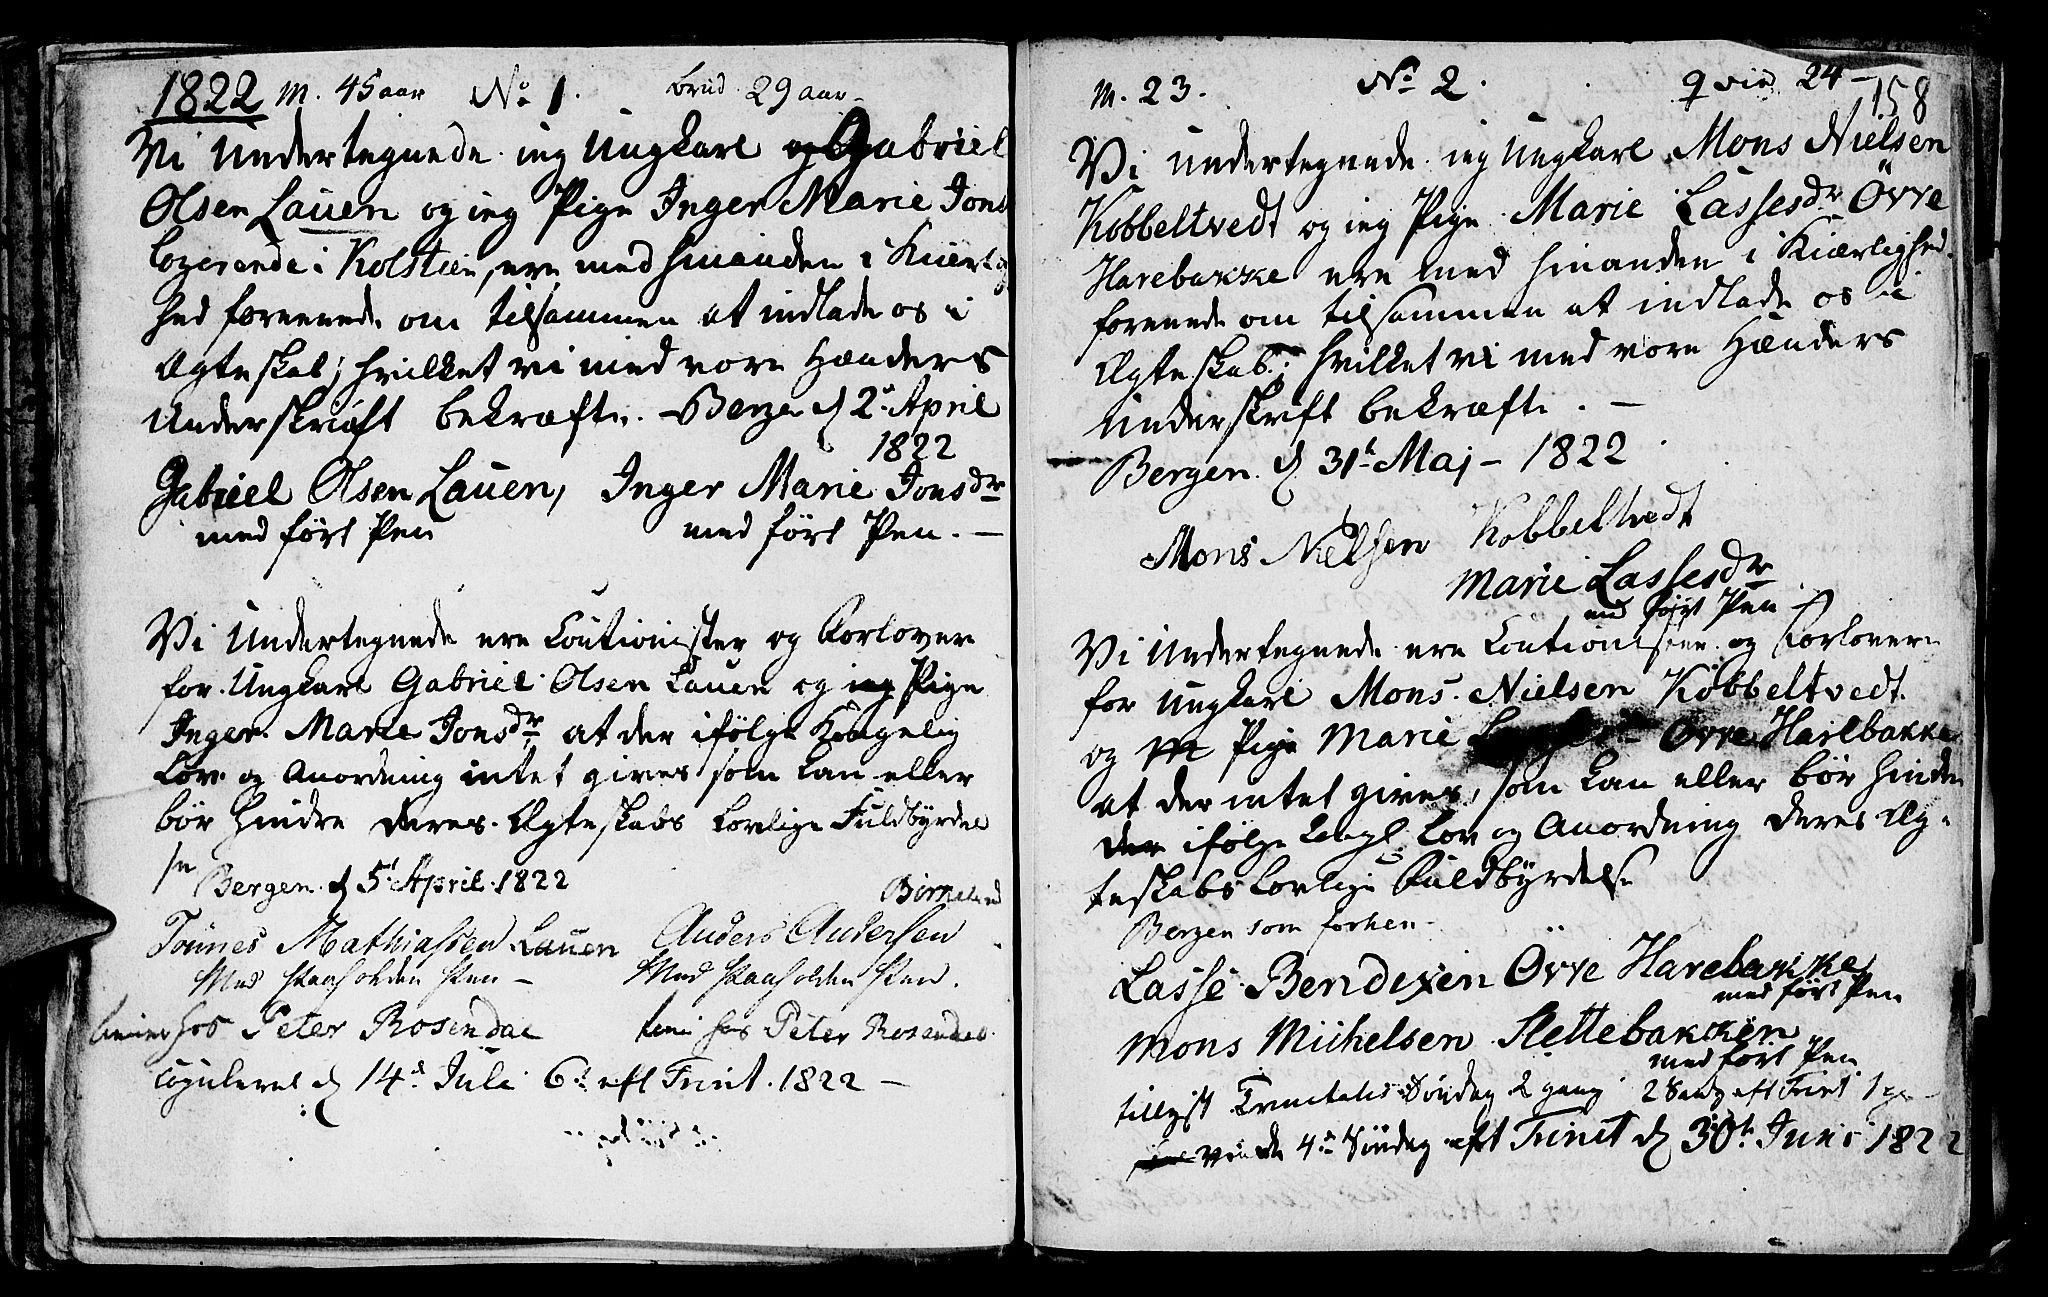 1822 M. 45 aar No 1. brud 29 aar
Vi Undertegnede ieg Ungkarl Gabriel
Olsen Lauen og ieg Pige Inger Marie Jons
logerende i Kolstien, ere med hinanden i Kiærlig
hed foreenede om tilsammen at indlade os i
Ægteskab; hvilket vi med vore Hænders
Underskrift bekræfte. Bergen d 2 April
1822
Gabriel Olsen Lauen, Inger Marie Jonsdr
med ført Pen med ført Pen.
Vi Undertegnede ere Cautionister og Forlovere
for Ungkarl Gabriel Olsen Lauen og ieg Pige
Inger Marie Jonsdr at der ifølge Kongelig
Lov og Anordning intet gives som kan eller
bør hindre Deres Ægteskabs Lovlige Fuldbyrdel
se
Bergen d 5t April 1822
Tønnes Mathiassen Lauen Anders Andersen
Med paaholden Pen Med paaholden Pen.
hos Peter Rosendal hos Peter Rosendal
copuleret d 14d Juli 6d eft Trinit. 1822
M. 23. No 2. Qvin 24 158
Vi undertegnede ieg Ungkarl Mons Nielsen
Kobbeltvedt og ieg Pige Marie Lassesdr Övre
Harebakke ere med hinanden i Kiærlighed
foreenede om tilsammen at indlade os i
Ægteskab; hvilket vi med vore Hænders
Underskrift bekræfte.
Bergen d 31t Maj 1822
Mons Nielsen Kobbeltvedt
Marie Lassesdr
med ført Pen
Vi Undertegnede ere Cautionister og Forlovere
for Ungkarl Mons Nielsen Kobbeltvedt
og Pige Marie Övre Harebakke
at der intet gives, som kan eller bør hindre
der ifølge Kongl Lov og Anordning Deres Æg-
teskabs Lovlige Fuldbyrdelse
Bergen som forhen
Lasse Bendixen Övre Harebakke
med ført Pen
Mons Michelsen Slettebakken
med ført Pen
tillyst Trinitatis Söndag 2 gang 2 Sönd eft Trinit
viede 4de Söndag eft Trinit d 30t Juni 1822